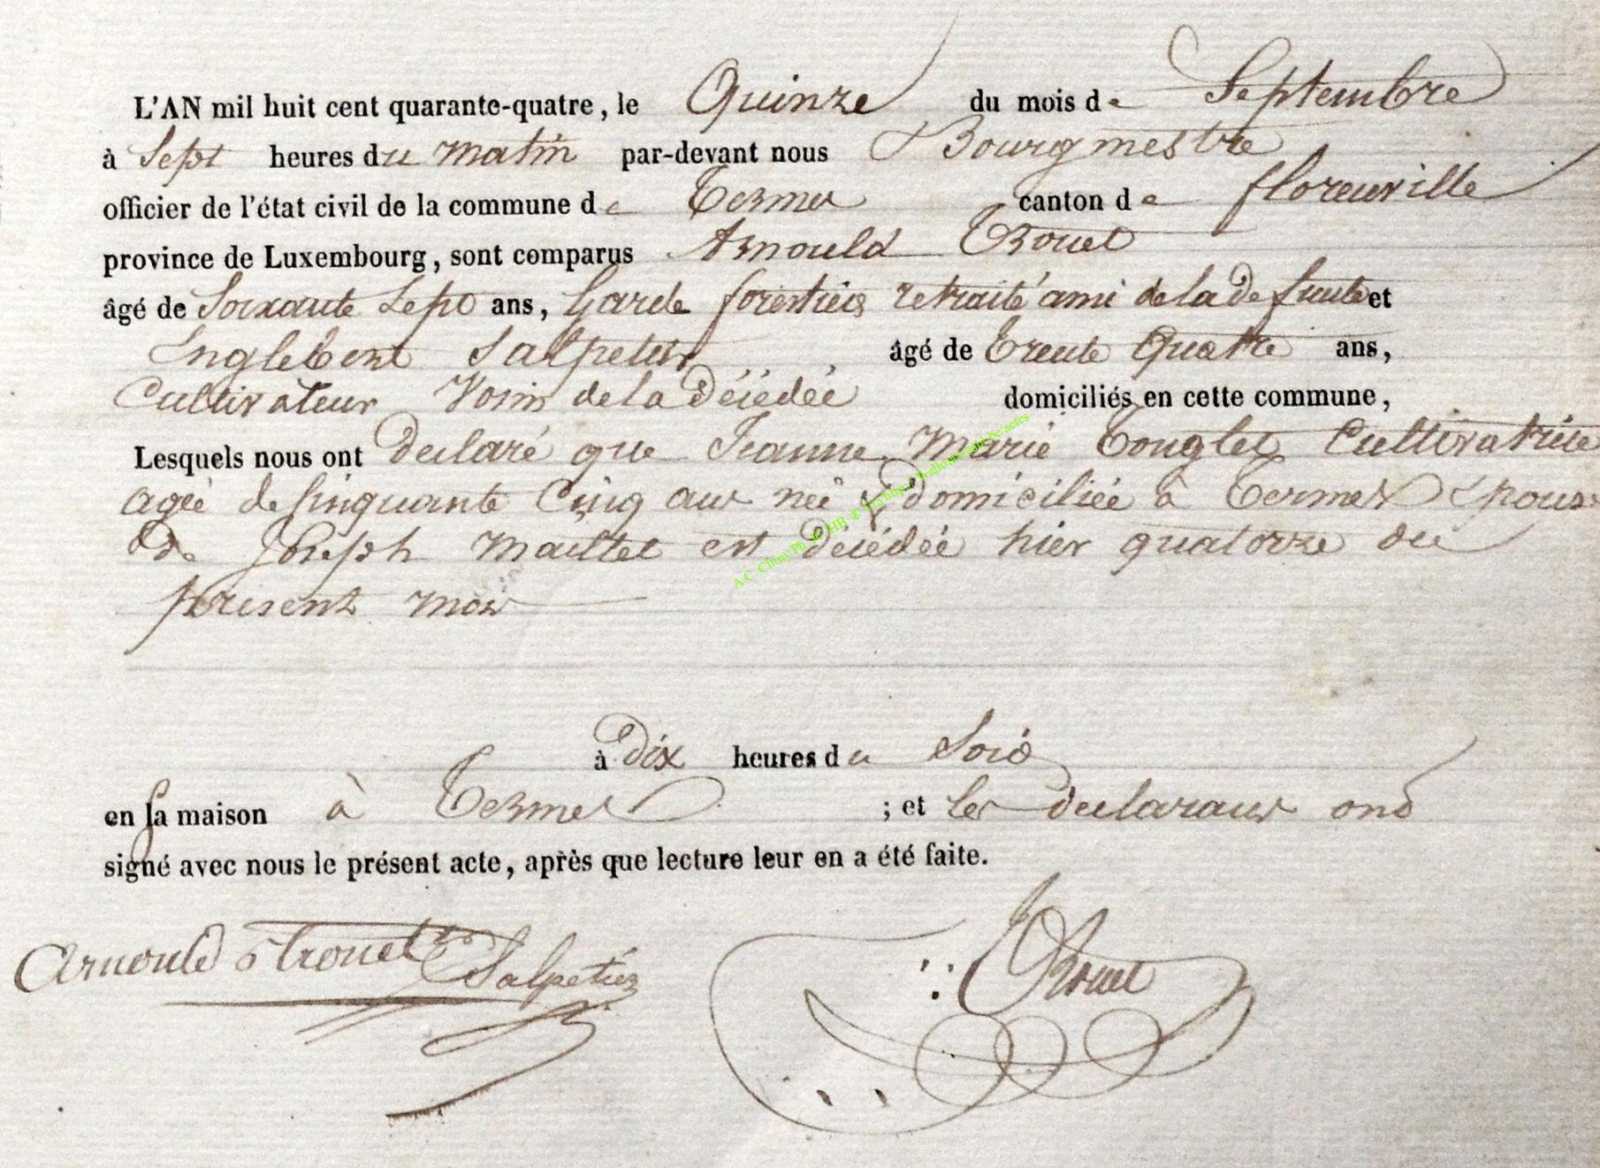 L'AN mil huit cent quarante-quatre, le Quinze du mois de Septembre
à Sept heures du matin par-devant nous Bourgmestre
officier de l'état civil de la commune de Termes canton de florenville
province de Luxembourg, sont comparus Arnould Trouet
âgé de Soixante Sept ans, Garde forestier retraité ami de la defunte et
Inglebert Salpeteur âgé de Trente Quatre ans,
Cultivateur Voisin de la Décédée domiciliés en cette commune,
Lesquels nous ont declaré que Jeanne Marie Tonglet Cultivatrice
agée de Cinquante Cinq ans née & domiciliée à Termes Epouse
de Joseph Maillet est décédée hier quatorze du
présent mois
à Dix heures du Soir
en sa maison à Termes ; et les declarans ont
signé avec nous le présent acte, après que lecture leur en a été faite.
Arnould Trouet Salpetier Trouet